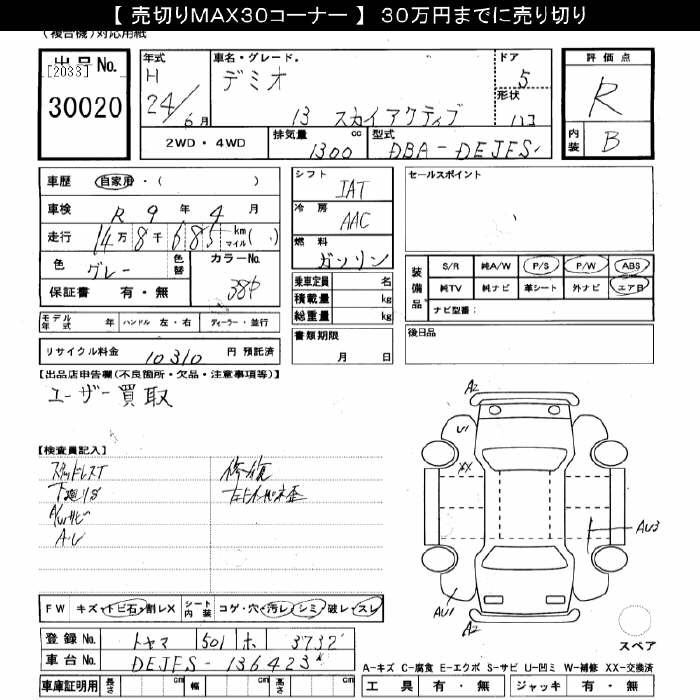 【 売切りMAX30コーナー 】 30万円までに売り切り
(複合機)対応用紙
出品 No.
[2033]
30020
年式
H
24/6月
車名・グレード.
デミオ
13 スカイアクティブ
ドア
5
形状
2WD・4WD
排気量
1300
cc
型式
DBA-DEJFS
評価点
R
内装
B
車歴 自家用・( )
車検 R 9 年 4 月
走行 14万8千685 km マイル( )
色 グレー 色替
カラーNo.
38P
保証書 有・無
シフト
IAT
冷房
AAC
燃料
ガソリン
乗車定員 名
積載量 kg
総重量 kg
セールスポイント
装備品
S/R 純A/W P/S P/W ABS
純TV 純ナビ 革シート 外ナビ エアB
ナビ型番:
モデル年式 年 ハンドル 左・右 ディーラー・並行
書類期限
月 日
後日品
リサイクル料金 10310 円 預託済
【出品店申告欄(不良箇所・欠品・注意事項等)】
ユーザー買取
【検査員記入】
修復
下廻りサビ
A2
U1
XX
AU3
AU1
A2
スペア
FW キズ・トビ石・割レX シート内装 コゲ・穴・汚レ・シミ・破レ・スレ
登録 No. トヤマ 501 ホ 3732
車台 No. DEJFS-136423
車庫証明用 長さ cm 幅 cm 高さ cm
A-キズ C-腐食 E-エクボ S-サビ U-凹ミ W-補修 XX-交換済
工具 有・無 ジャッキ 有・無